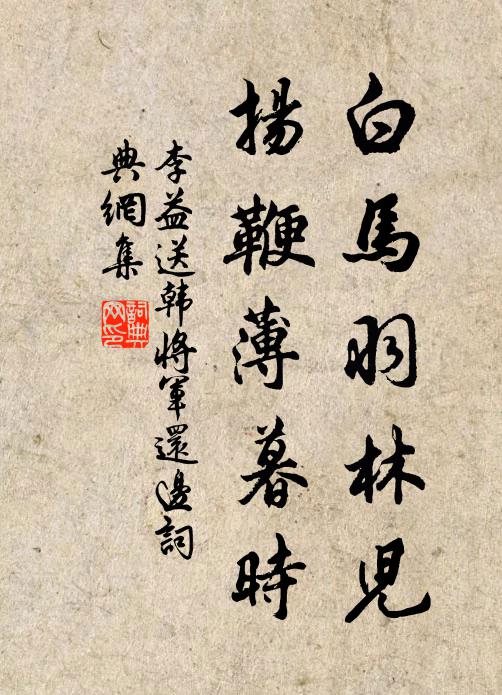 白馬羽林兒
揚鞭薄暮時
李益送韩將軍還邊詞
典網集
詞典
网印